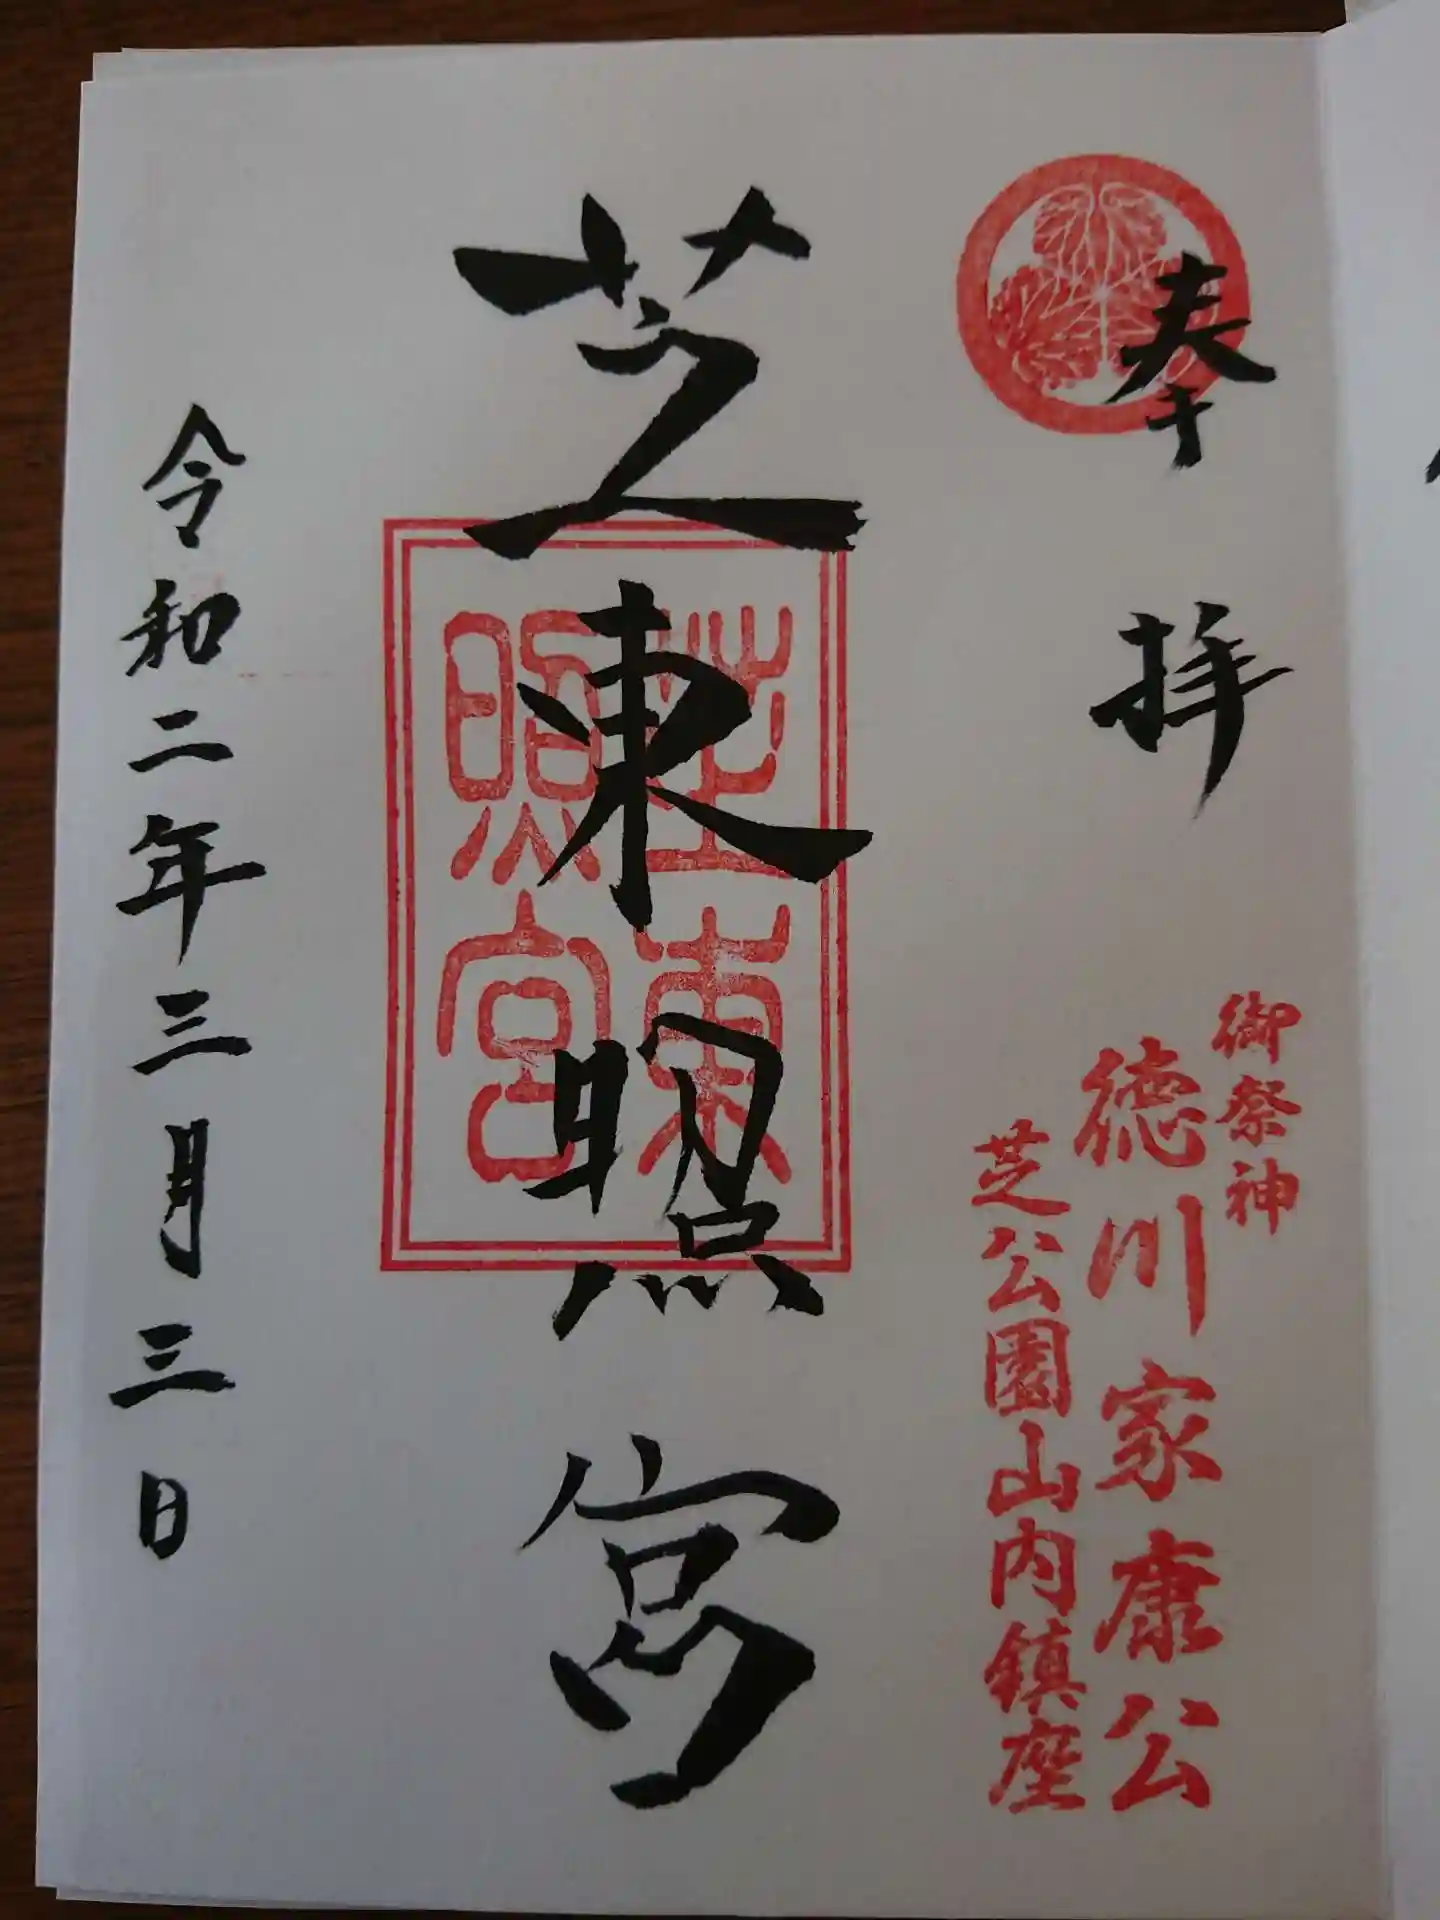 奉拝
御祭神
徳川家康公
芝公園山内鎮座
芝東照宮
芝東
照宮
令和二年三月三日